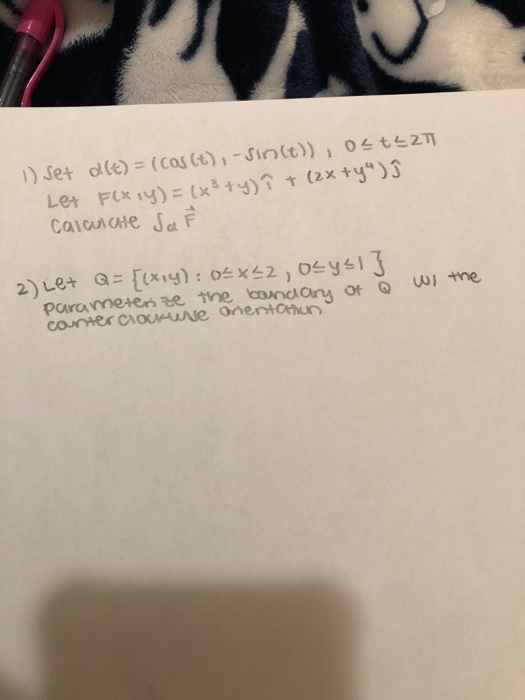 1) Set α(t) = (cos(t), -sin(t)), 0≤t≤2π
Let F(x,y) = (x³+y)î + (2x+y⁴)ĵ
Calculate ∫α F⃗
2) Let Q = {(x,y): 0≤x≤2, 0≤y≤1}
parameterize the boundary of Q w/ the
counterclockwise orientation